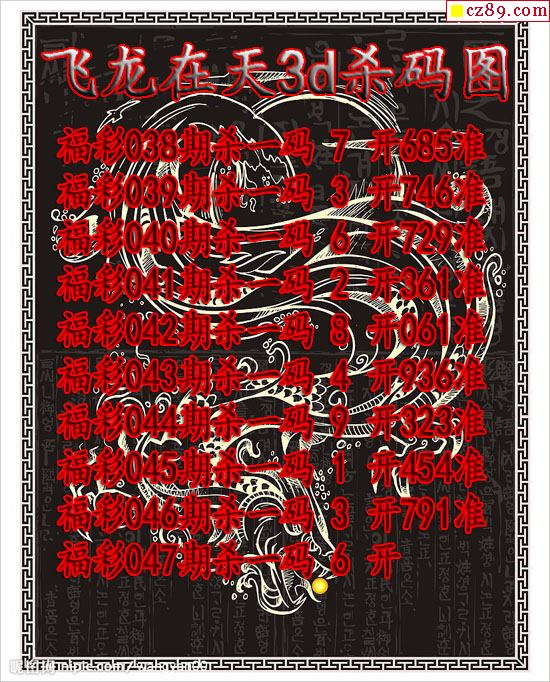 cz89.com
飞龙在天3d杀码图
福彩038期杀一码 7 开685准
福彩039期杀一码 3 开746准
福彩040期杀一码 6 开729准
福彩041期杀一码 2 开361准
福彩042期杀一码 8 开061准
福彩043期杀一码 4 开936准
福彩044期杀一码 9 开323准
福彩045期杀一码 1 开454准
福彩046期杀一码 3 开791准
福彩047期杀一码 6 开